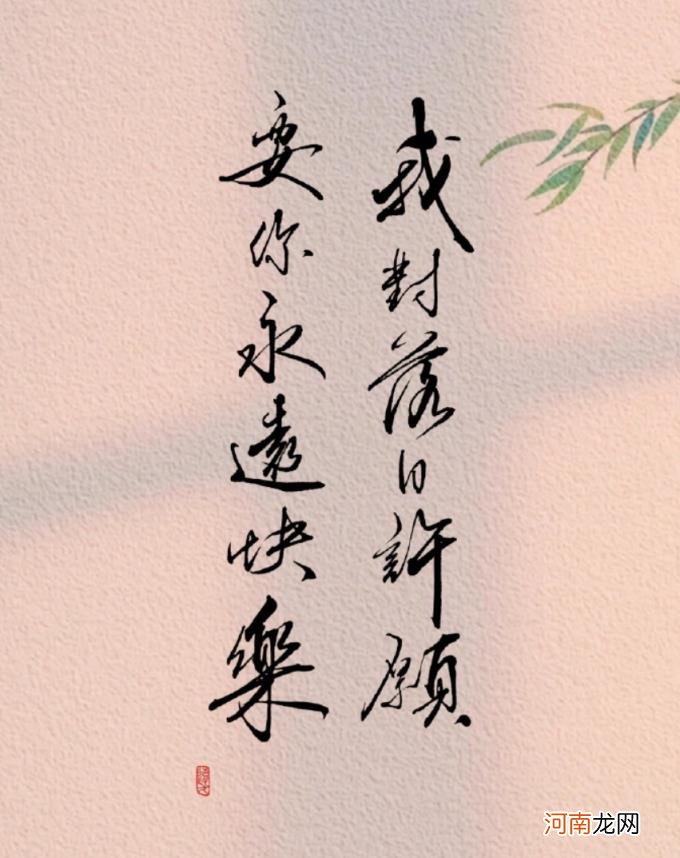 我對落日許願
要你永遠快樂
河南龙网